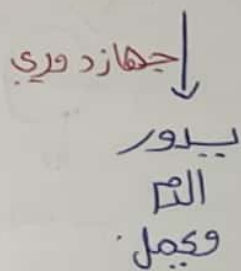 جهاز دوري
يدور
الدم
ويحمل